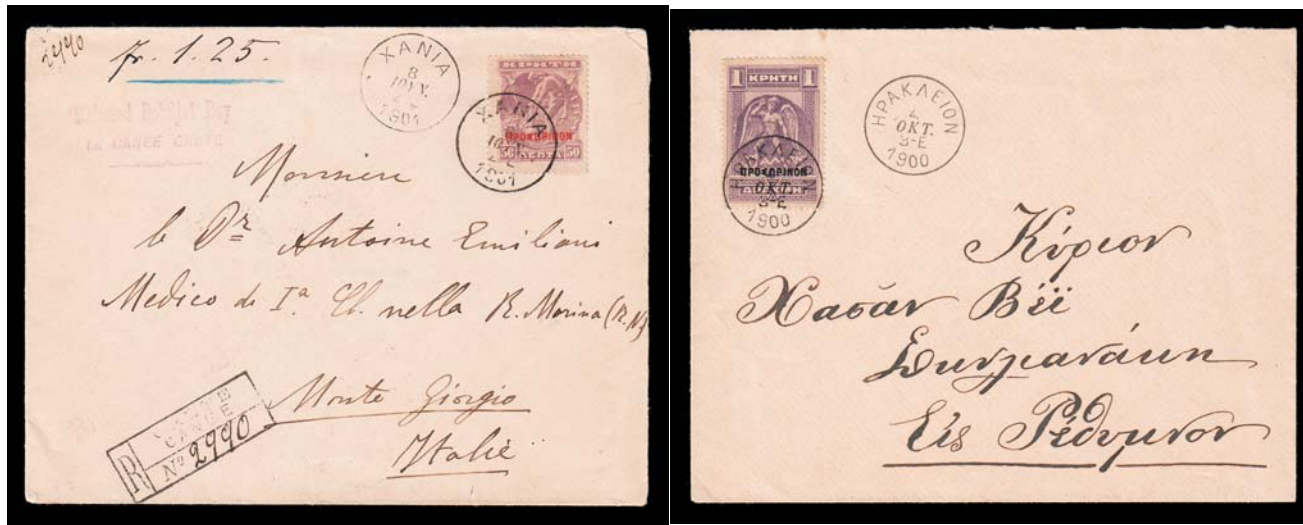 2990
fr. 1.25.
ΧΑΝΙΑ
8
ΙΟΥΝ.
1901
ΚΡΗΤΗ
ΠΡΟΣΩΡΙΝΟΝ
50 ΛΕΠΤΑ 50
ΧΑΝΙΑ
ΙΟΥΝ.
1901
Bey
LA CANÉE CRÈTE
Monsieur
le Dr Antoine Emiliani
Medico di Iª Cl. nella R. Marina (R. N.)
Monte Giorgio
Italie
R
CANEE
Nº 2990
1 ΚΡΗΤΗ 1
ΠΡΟΣΩΡΙΝΟΝ
ΗΡΑΚΛΕΙΟΝ
ΟΚΤ.
3-Ε
1900
ΗΡΑΚΛΕΙΟΝ
2
ΟΚΤ.
3-Ε
1900
Κύριον
Χασὰν Βέϊ
Σκυλιανάκη
Εἰς Ρέθυμνον